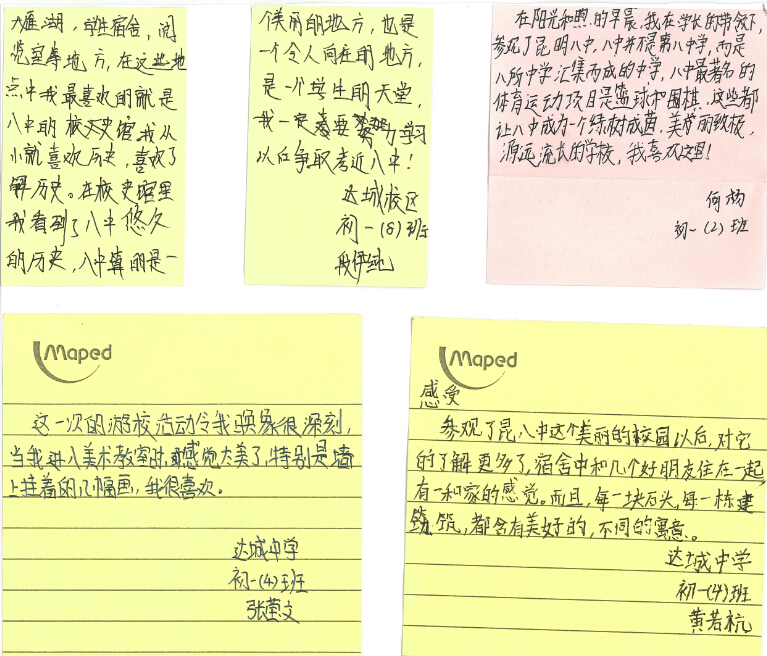 大雁湖，学生宿舍，阅
览室等地方，在这些地
点中我最喜欢的就是
八中的校史馆，我从
小就喜欢历史，喜欢了
解历史。在校史馆里
我看到了八中悠久
的历史，八中真的是一
个美丽的地方，也是
一个令人向往的地方，
是一个学生的天堂，
我一定要努力学习
以后争取考近八中！
达城校区
初一（8）班
段伊纯
在阳光和煦的早晨，我在学长的带领下，
参观了昆明八中，八中并不是第八中学，而是
八所中学汇集而成的中学，八中最著名的
体育运动项目是篮球和围棋，这些都
让八中成为一个绿树成茵，美丽致极，
源远流长的学校，我喜欢这里！
何杨
初一（2）班
Maped
这一次的游校活动令我映象很深刻，
当我进入美术教室时，感觉太美了，特别是墙
上挂着的几幅画，我很喜欢。
达城中学
初一（4）班
张莹文
Maped
感受
参观了昆八中这个美丽的校园以后，对它
的了解更多了，宿舍中和几个好朋友住在一起，
有一和家的感觉。而且，每一块石头，每一栋建
筑，都含有美好的，不同的寓意。
达城中学
初一（4）班
黄若杭